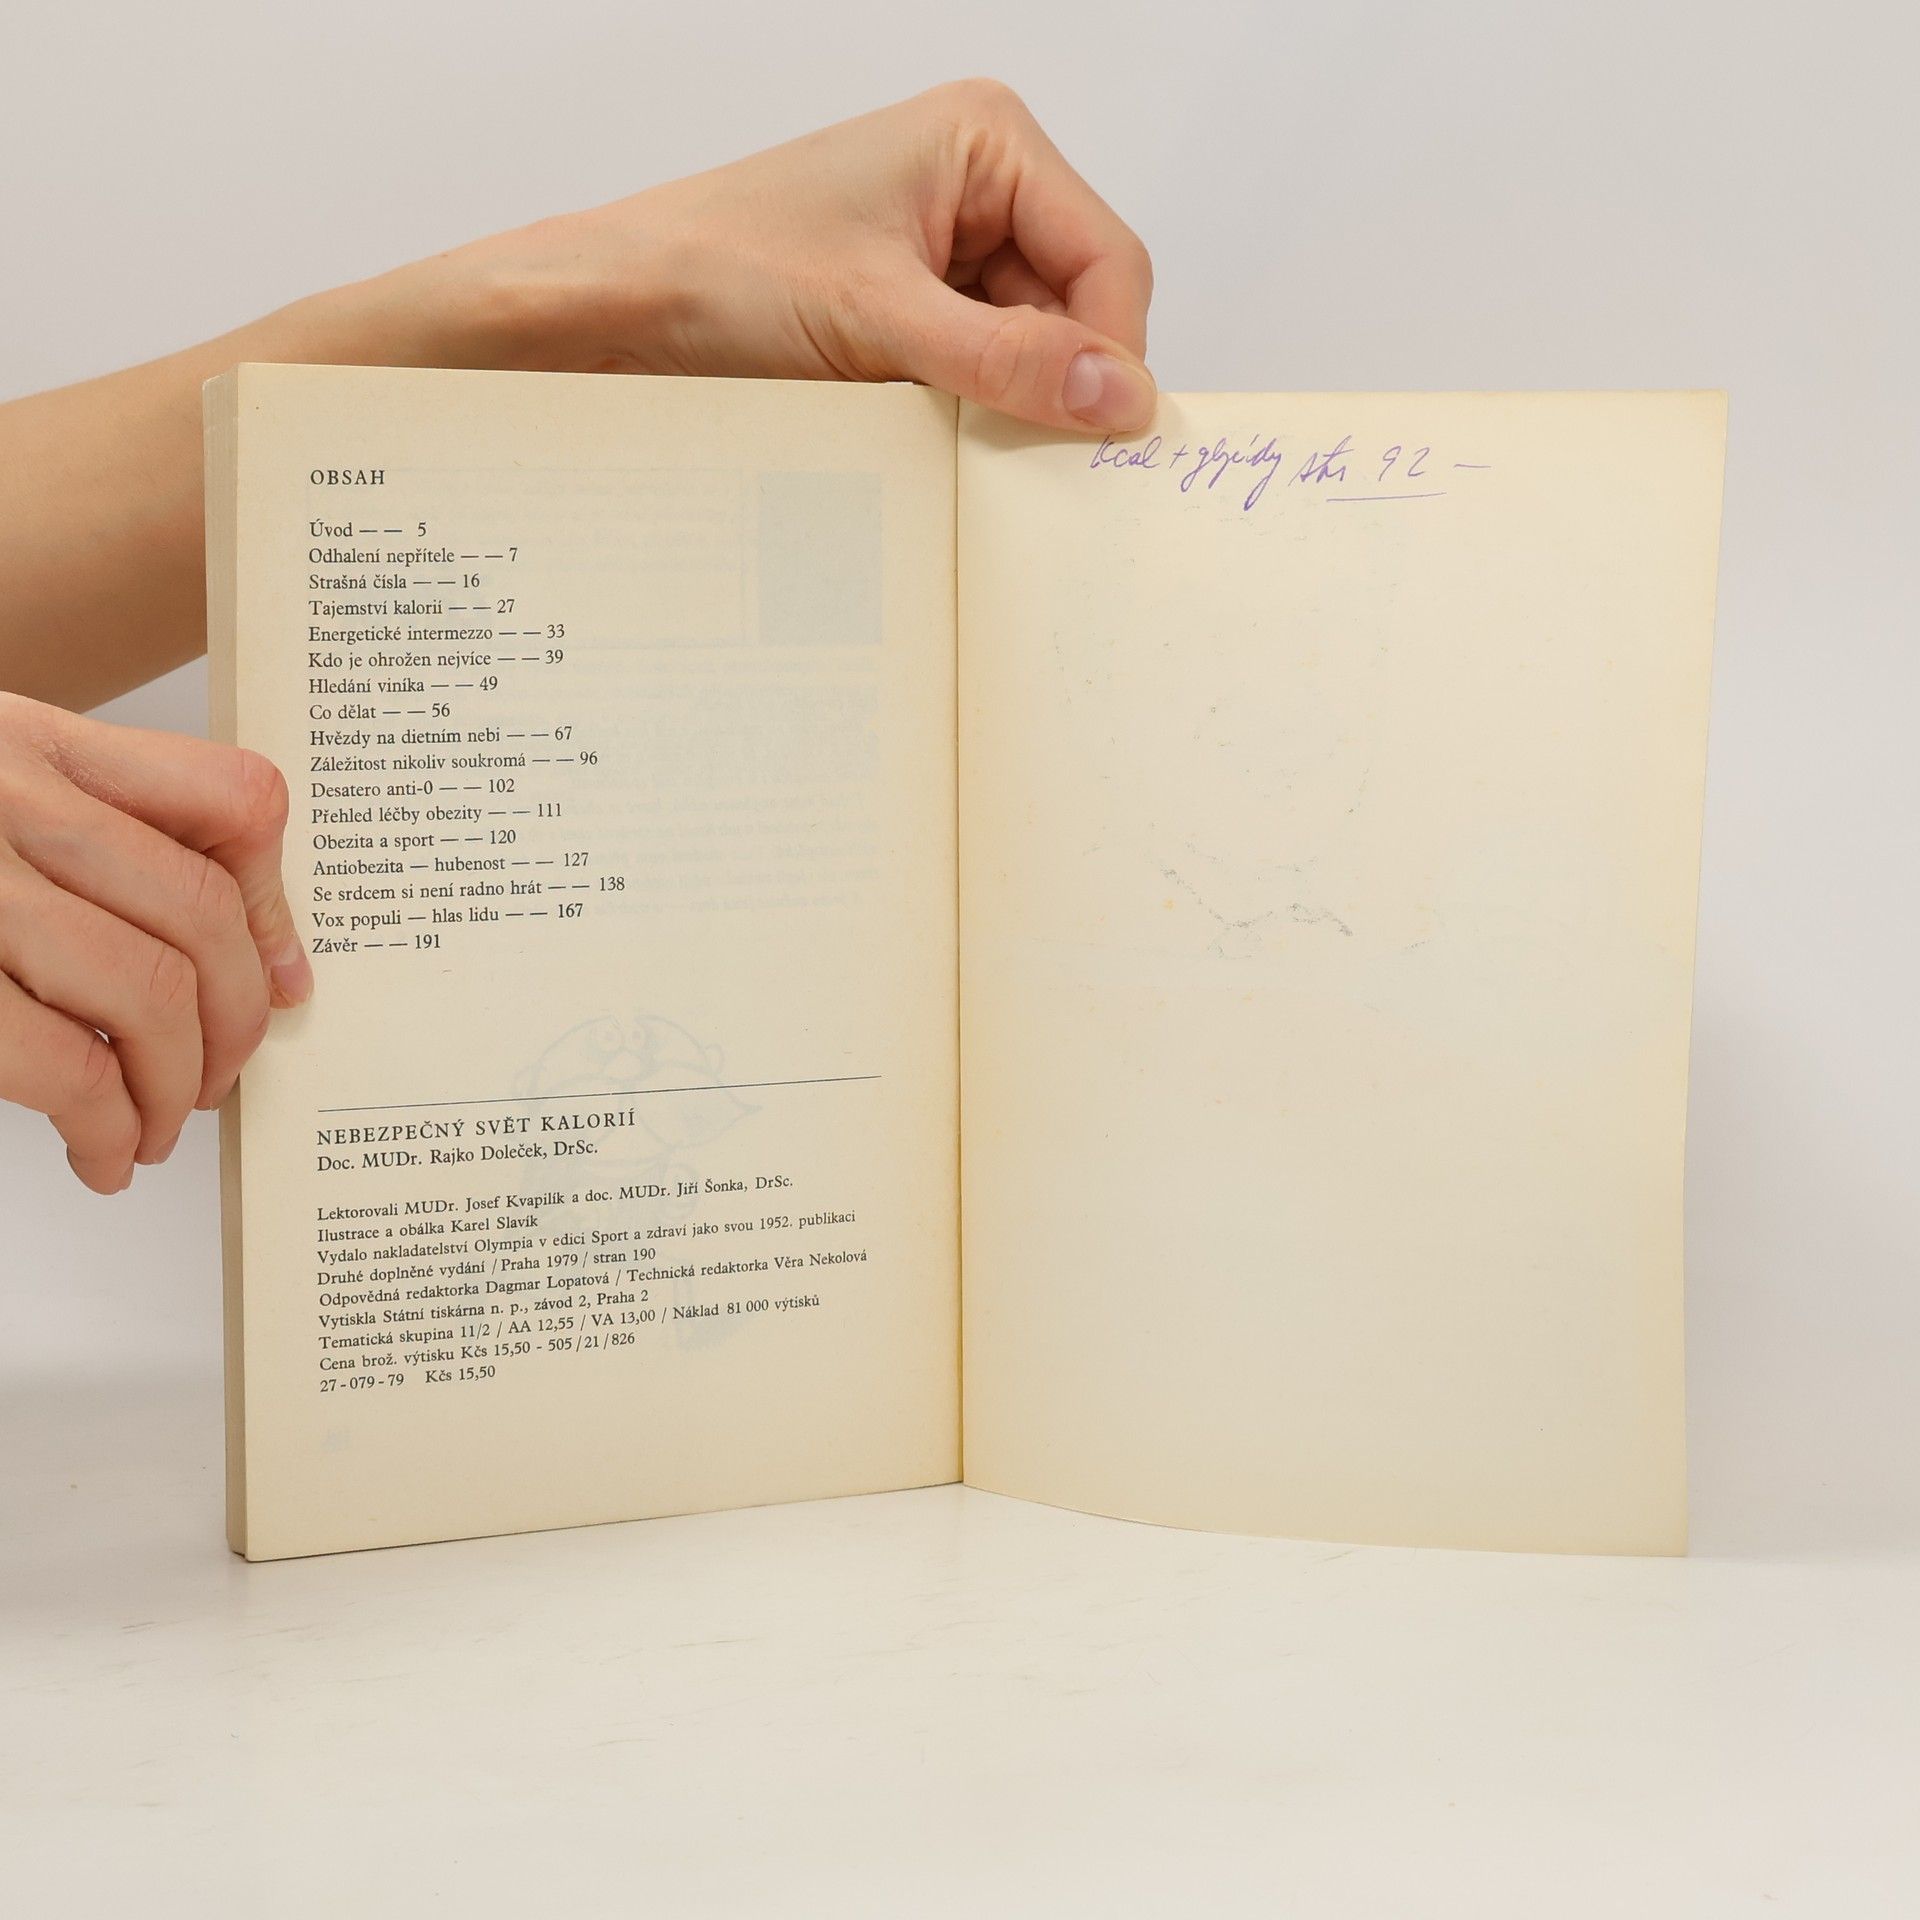 OBSAH
Úvod — — 5
Odhalení nepřítele — — 7
Strašná čísla — — 16
Tajemství kalorií — — 27
Energetické intermezzo — — 33
Kdo je ohrožen nejvíce — — 39
Hledání viníka — — 49
Co dělat — — 56
Hvězdy na dietním nebi — — 67
Záležitost nikoliv soukromá — — 96
Desatero anti-0 — — 102
Přehled léčby obezity — — 111
Obezita a sport — — 120
Antiobezita — hubenost — — 127
Se srdcem si není radno hrát — — 138
Vox populi — hlas lidu — — 167
Závěr — — 191
NEBEZPEČNÝ SVĚT KALORIÍ
Doc. MUDr. Rajko Doleček, DrSc.
Lektorovali MUDr. Josef Kvapilík a doc. MUDr. Jiří Šonka, DrSc.
Ilustrace a obálka Karel Slavík
Vydalo nakladatelství Olympia v edici Sport a zdraví jako svou 1952. publikaci
Druhé doplněné vydání / Praha 1979 / stran 190
Odpovědná redaktorka Dagmar Lopatová / Technická redaktorka Věra Nekolová
Vytiskla Státní tiskárna n. p., závod 2, Praha 2
Tematická skupina 11/2 / AA 12,55 / VA 13,00 / Náklad 81 000 výtisků
Cena brož. výtisku Kčs 15,50 - 505/21/826
27-079-79 Kčs 15,50
Kcal + glycidy str 92 —